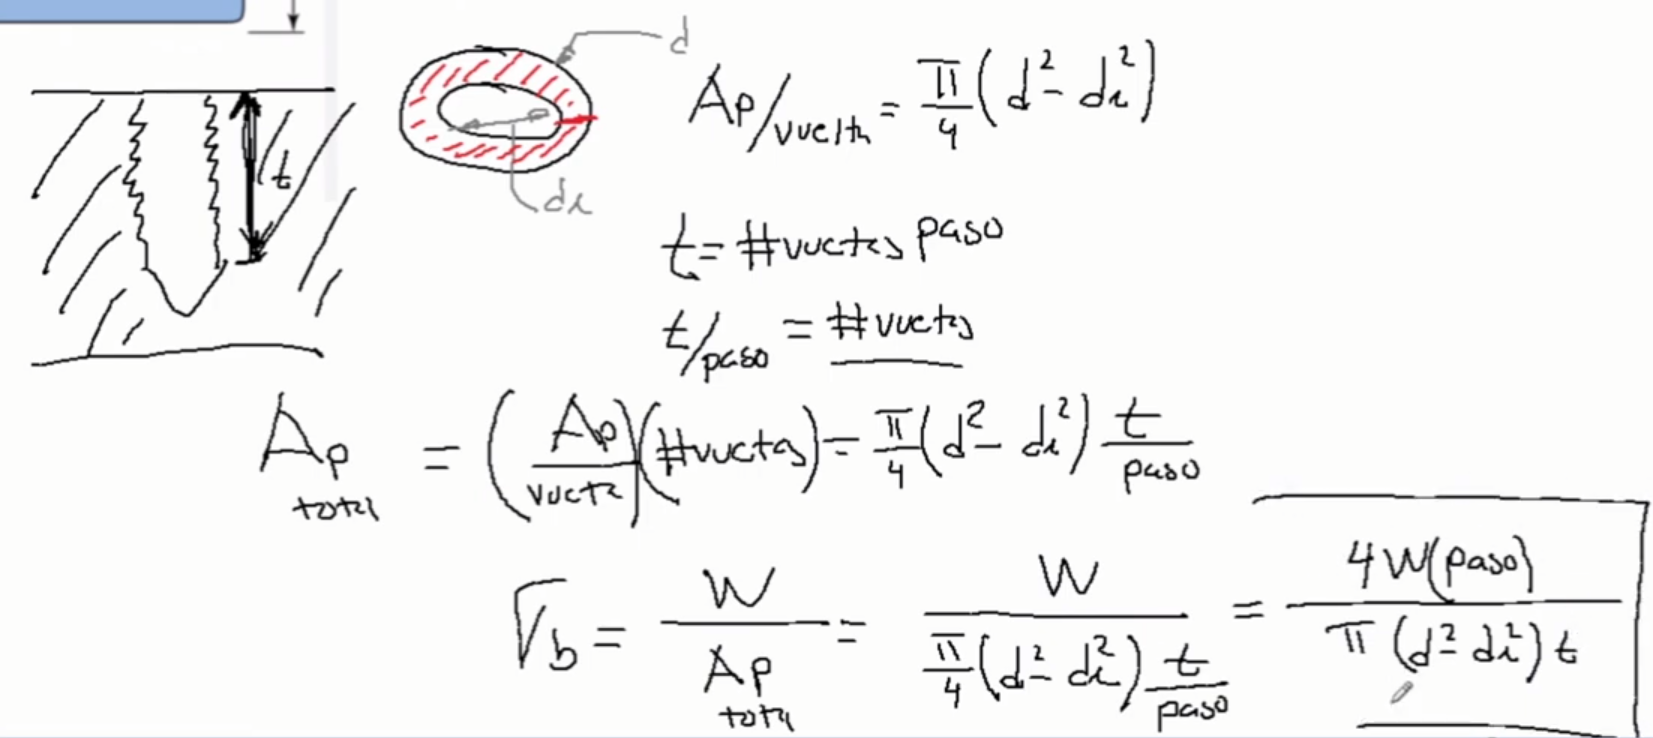 d
Ap/vuelta = π/4 (d² - di²)
t
di
t = #vueltas paso
t/paso = #vueltas
Ap total = (Ap/vuelta)(#vueltas) = π/4 (d² - di²) t/paso
σb = W/Ap total = W/(π/4 (d² - di²) t/paso) = 4W(paso)/(π (d² - di²) t)